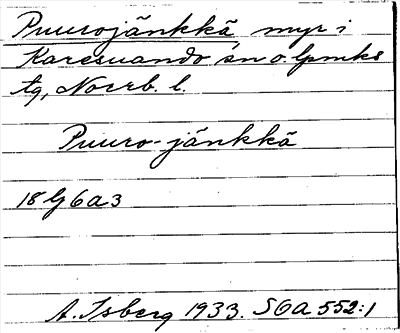 Puurojänkkä myr i
Karesuando sn o. lpmks
tg, Norrb. l.
Puuro-jänkkä
18 G 6 a 3
A. Isberg 1933. SOA 552:1